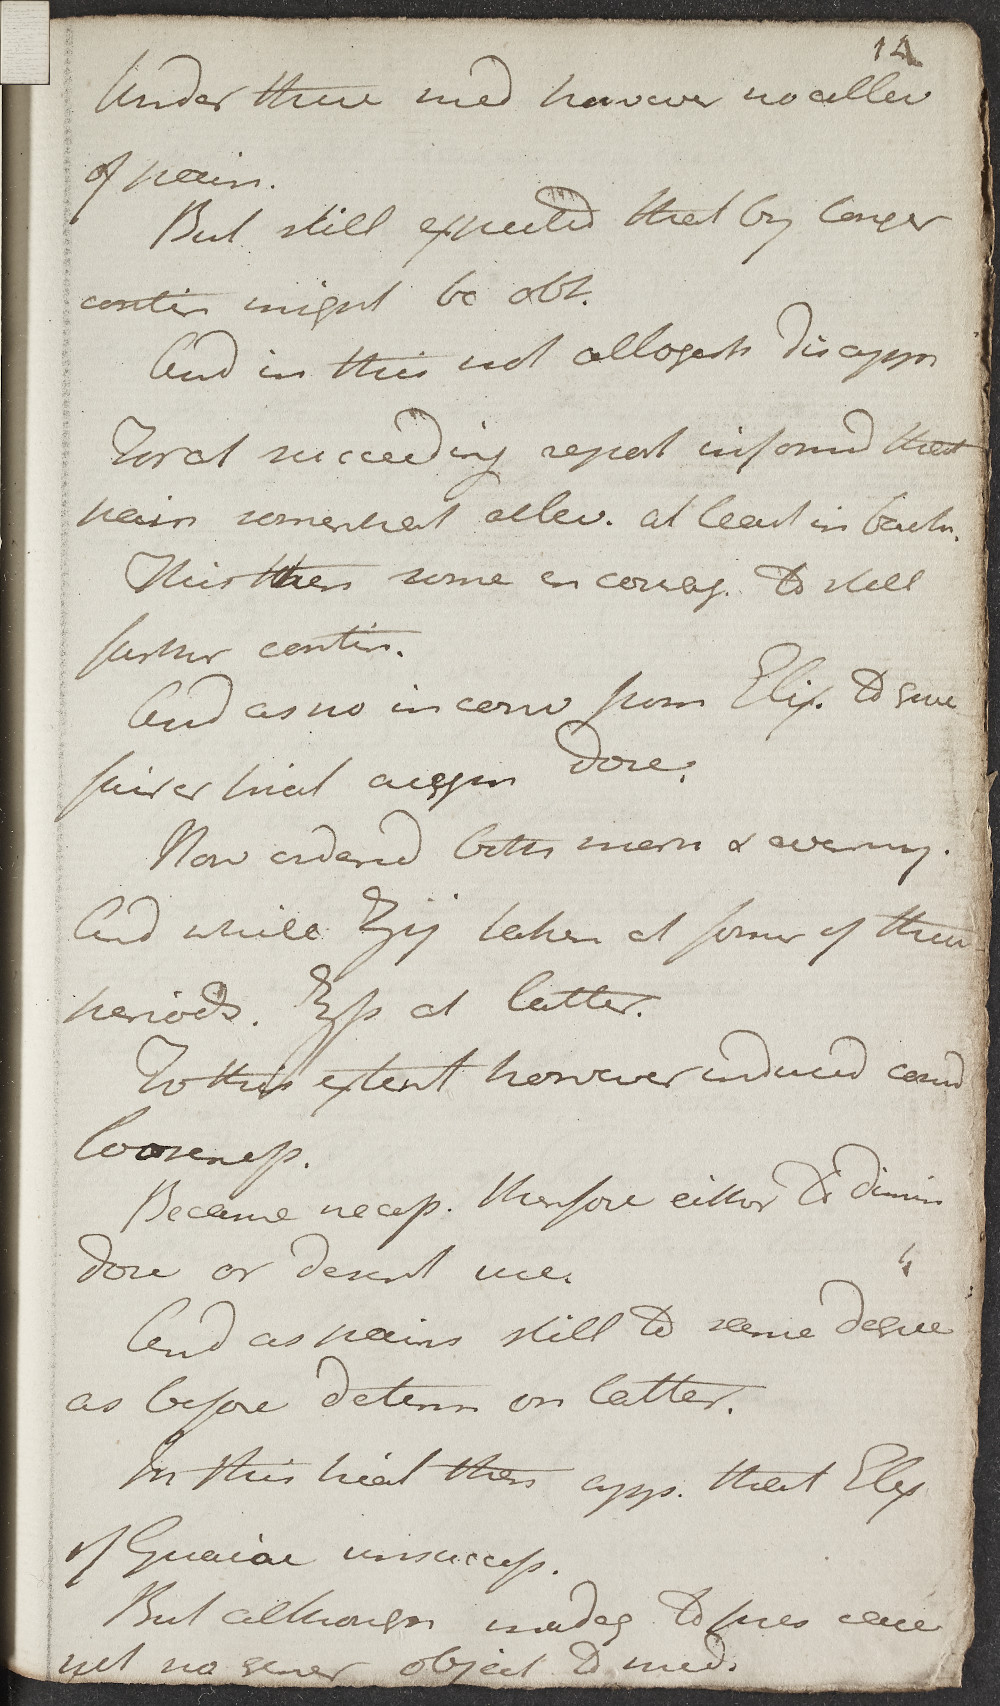 14
Under these med however no allev
of pain.
But still expected that by longer
contin might be obt.
And in this not altogeth disappn
For at succeeding report informd that
pain somewhat allev. at least in back.
This then some encourag. to still
further contin.
And as no inconv from Elix. to give
fairer trial augm dose.
Now ordered both morn & evening.
And while ℥ij taken at former of these
periods. ℥ss at latter.
To this extent however induced consid
looseness.
Became necess. therefore either to dimin
dose or desert use.
And as pains still to same degree
as before determ on latter.
In this trial then app. that Elix
of Guaiac unsuccess.
But although inadeq to pres case
yet no gener object to med.